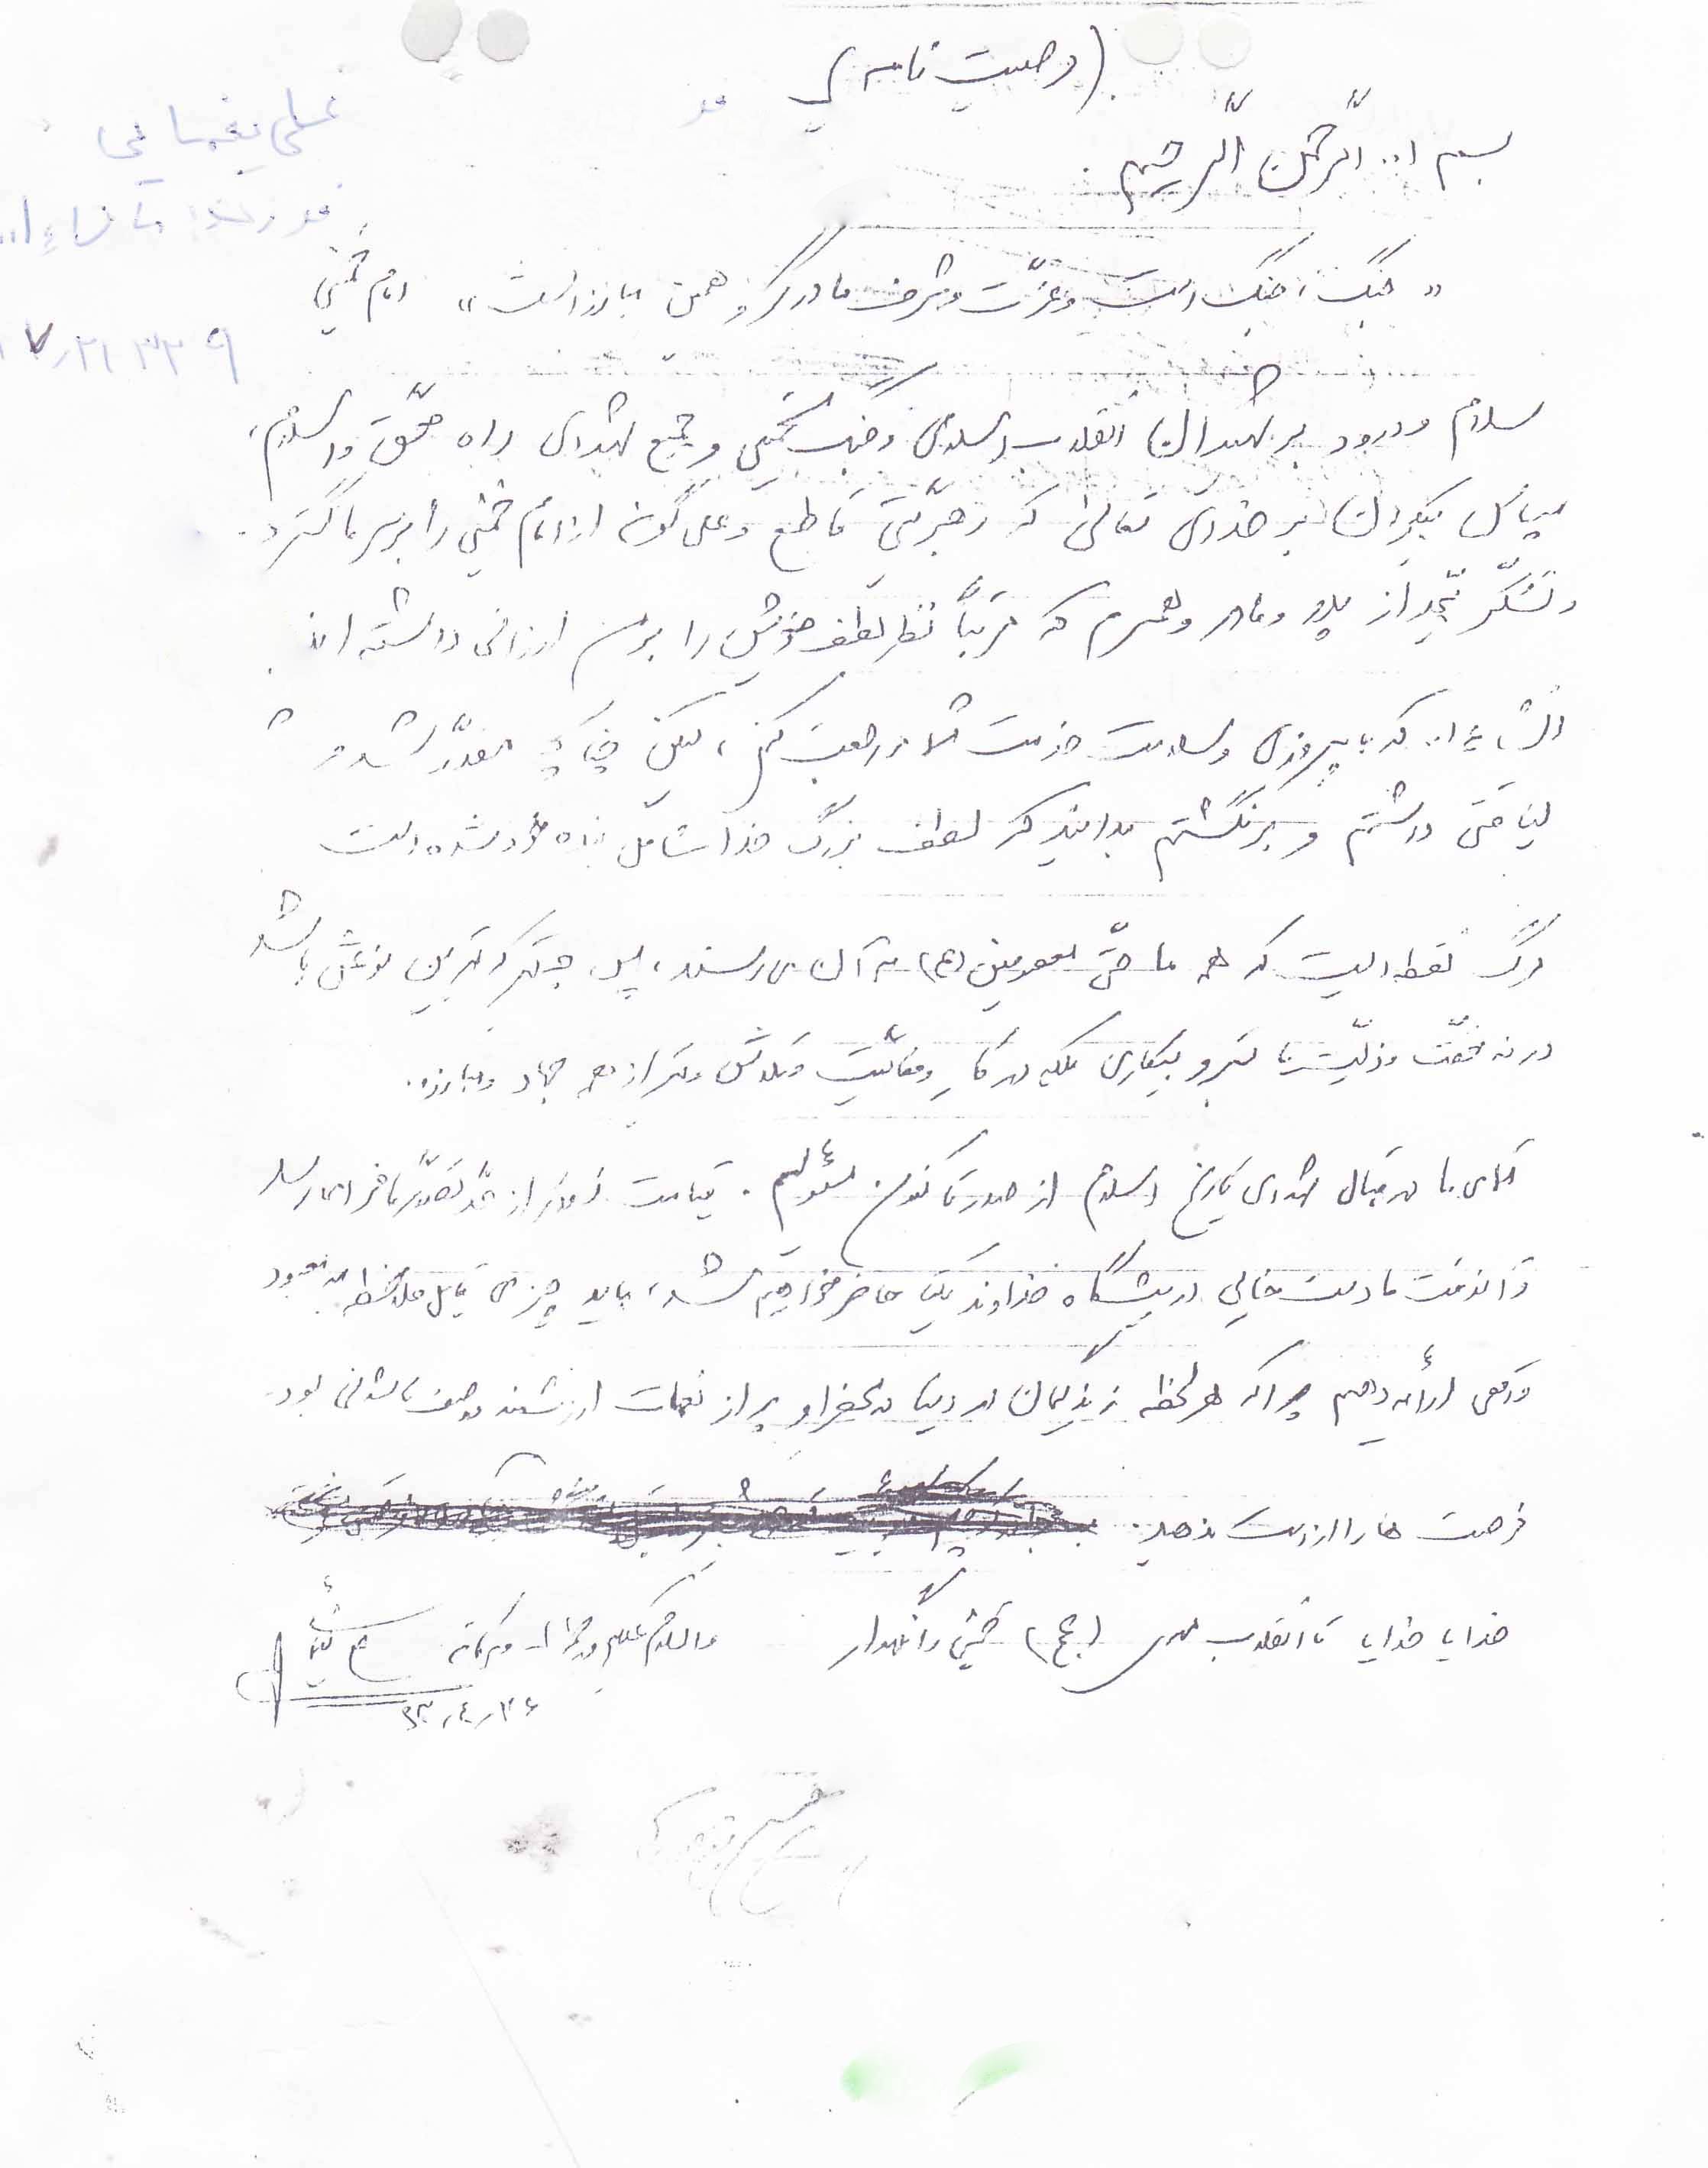 (وصیت نامه)
علی یغمایی
بسم ا.. الرّحمن الرّحیم.
فرزند: ماشاءا..
« جنگ، جنگ است و عزّت و شرف ما در گرو همین مبارزه است » امام خمینی
۲۱۳۳۹
سلام و درود بر شهیدان انقلاب اسلامی و جنگ تحمیلی و جمیع شهدای راه حقّ و اسلام،
سپاس بیکران بر خدای تعالی که رهبریّتی قاطع و علی گونه از امام خمینی را بر سر ما گسترد.
و تشکّر بیحد از پدر و مادر و همسرم که مرتباً نظر لطف خویش را بر من ارزانی داشته اند.
انشاءا.. که با پیروزی و سلامت خدمت شما مراجعت کنم، لیکن چنانچه مقدّر شد و
لیاقتی داشتم و برنگشتم بدانید که لطف بزرگ خدا شامل بنده خود شده است
مرگ نقطه ایست که همه ما حتّی معصومین (ع) به آن می رسند، پس چه بهتر که بهترین نوعش باشد
در نه خفّت و ذلّت یا بیکاری بلکه در کار و فعالیّت و تلاش و بهتر از همه جهاد و مبارزه.
همه ما در قبال شهدای تاریخ اسلام از صدر تا کنون مسؤولیم. قیامت زودتر از حدّ تصوّر ما فرا می رسد
و آنوقت ما دست خالی در پیشگاه خداوند یکتا حاضر خواهیم شد، باید چیزی قابل ملاحظه به معبود
واقعی ارائه دهیم چرا که هر لحظه زندگیمان در دنیا پر از نعمات ارزشمند بود.
فرصت ها را از دست ندهید.
خدایا خدایا تا انقلاب مهدی (عج) خمینی را نگهدار والسلام علیکم و رحمة ا.. و برکاته
۶۲٫۴٫۲۶